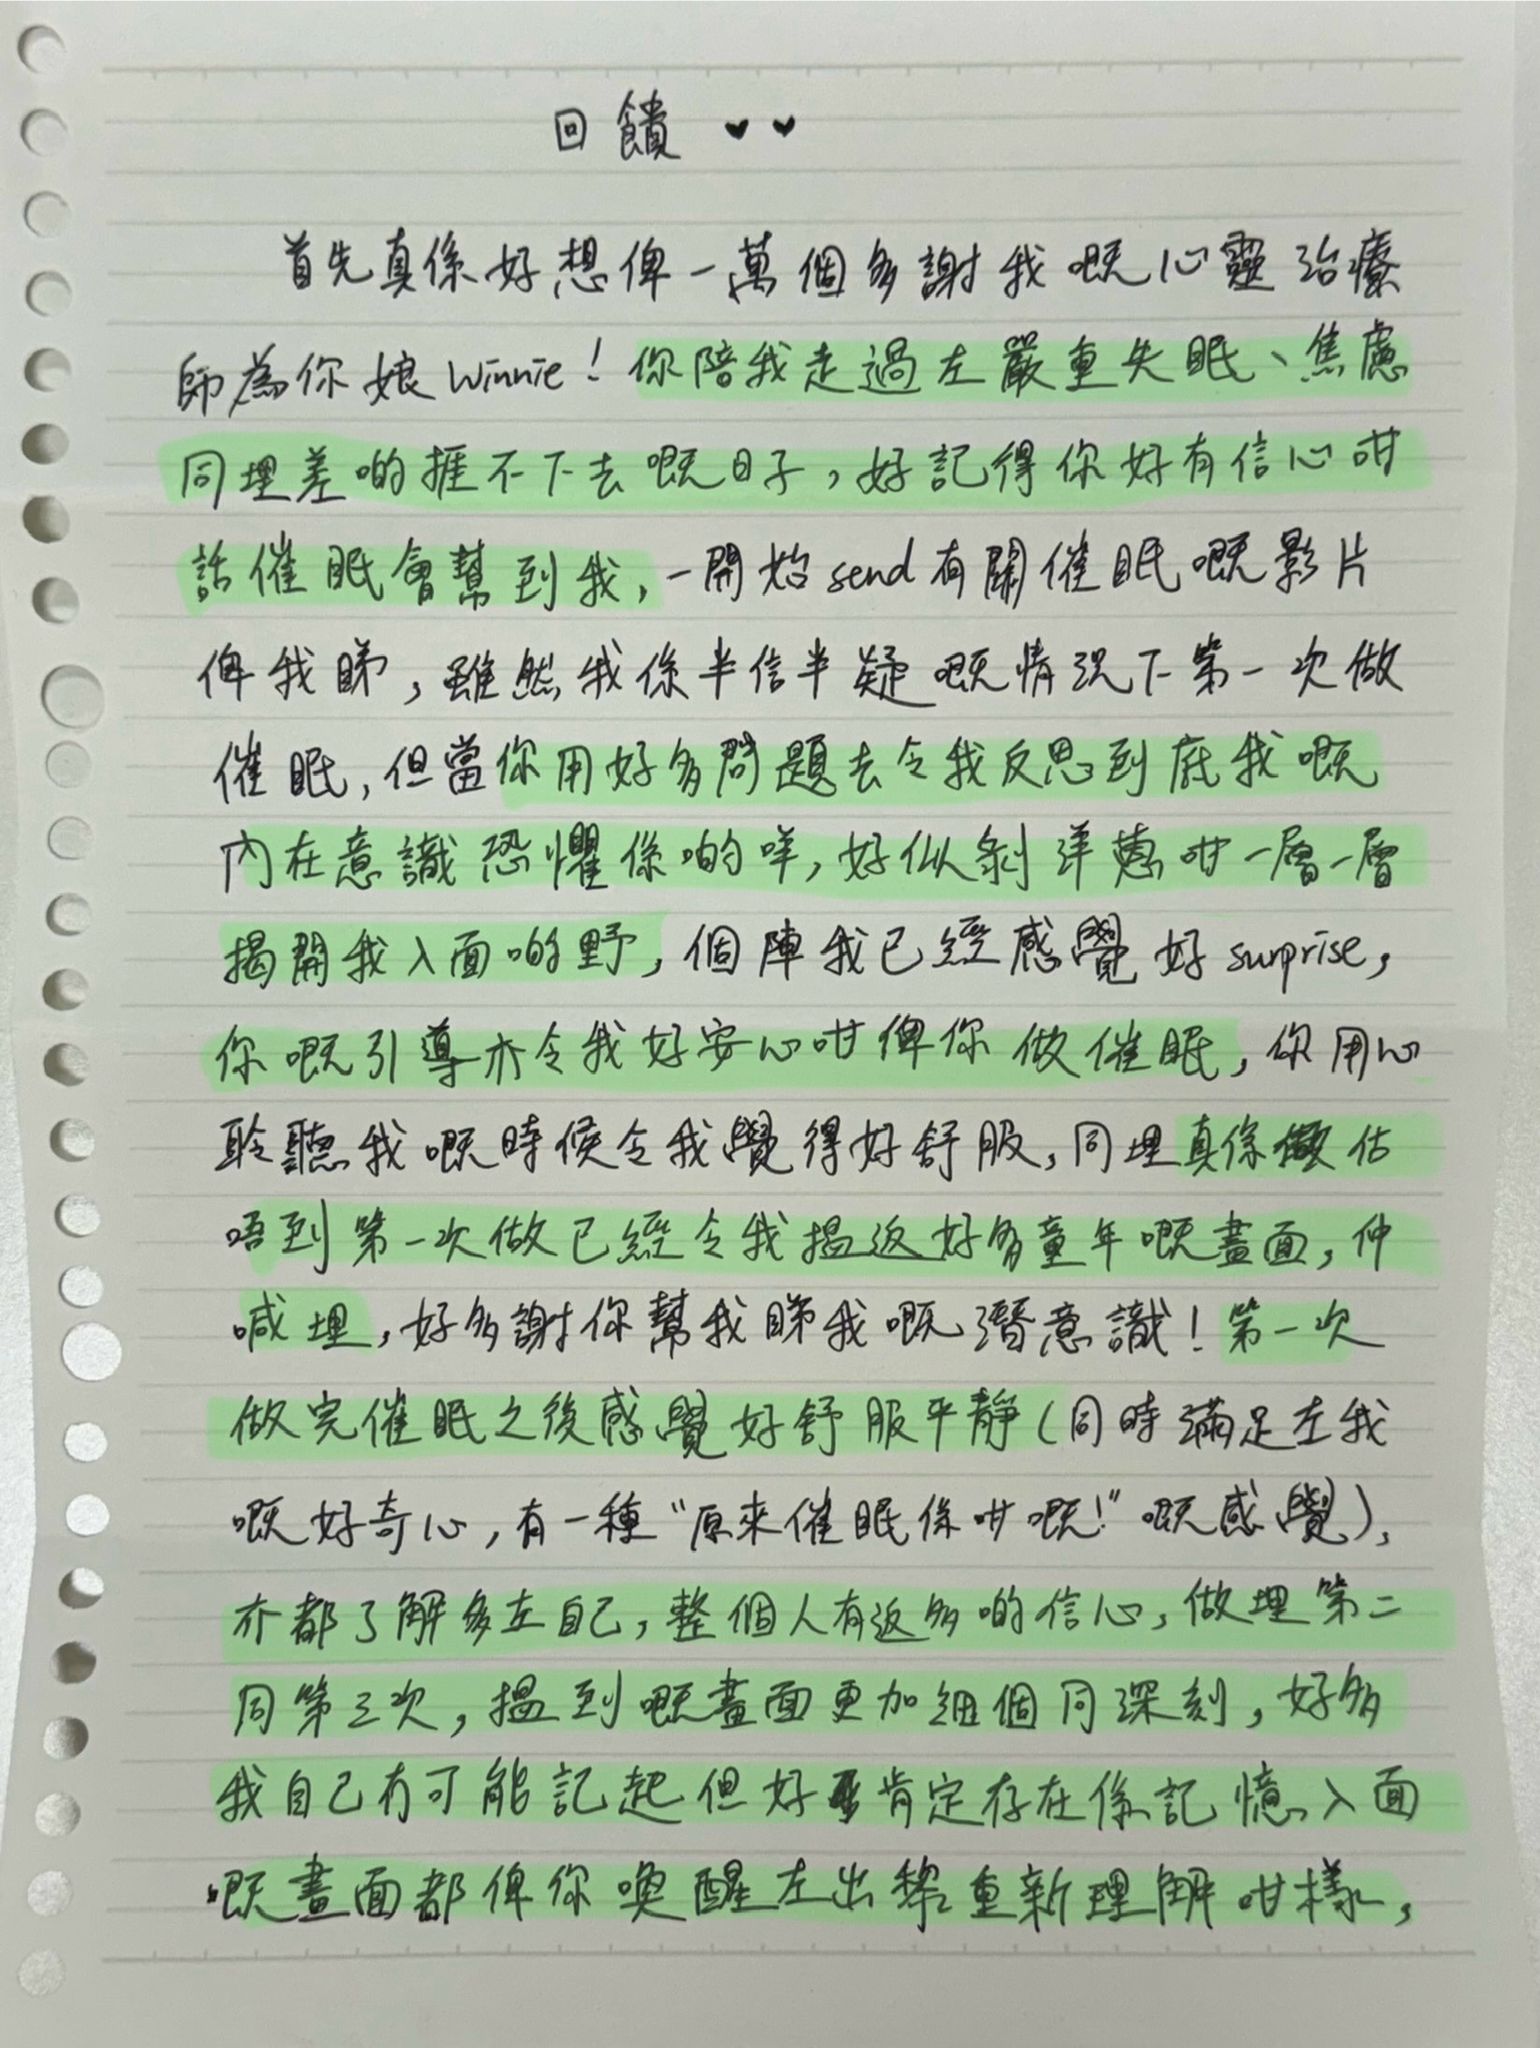 回饋 ♥♥
首先真係好想俾一萬個多謝我嘅心靈治療
師為你娘Winnie！你陪我走過左嚴重失眠、焦慮
同埋差啲捱不下去嘅日子，好記得你好有信心咁
話催眠會幫到我，一開始send有關催眠嘅影片
俾我睇，雖然我係半信半疑嘅情況下第一次做
催眠，但當你用好多問題去令我反思到底我嘅
內在意識恐懼係啲咩，好似剝洋蔥咁一層一層
揭開我入面啲野，個陣我已經感覺好surprise，
你嘅引導亦令我好安心咁俾你做催眠，你用心
聆聽我嘅時候令我覺得好舒服，同埋真係估
唔到第一次做已經令我搵返好多童年嘅畫面，仲
喊埋，好多謝你幫我睇我嘅潛意識！第一次
做完催眠之後感覺好舒服平靜（同時滿足左我
嘅好奇心，有一種“原來催眠係咁嘅！”嘅感覺），
亦都了解多左自己，整個人有返多啲信心，做埋第二
同第三次，搵到嘅畫面更加細個同深刻，好多
我自己冇可能記起但好肯定存在係記憶入面
嘅畫面都俾你喚醒左出黎重新理解咁樣，